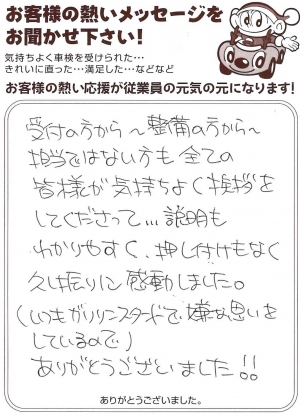 お客様の熱いメッセージを
お聞かせ下さい!
気持ちよく車検を受けられた…
きれいに直った…満足した…などなど
お客様の熱い応援が従業員の元気の元になります!
受付の方から～整備の方から～
担当ではない方も全ての
皆様が気持ちよく挨拶を
してくださって…説明も
わかりやすく、押し付けもなく
久し振りに感動しました。
(いつもガソリンスタンドで嫌な思いを
しているので)
ありがとうございました!!
ありがとうございました。